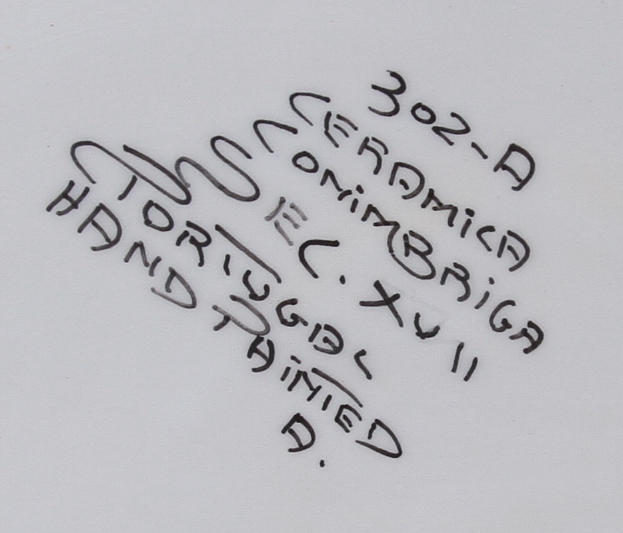 302-A
CERAMICA
CONIMBRIGA
SEC. XVII
PORTUGAL
HAND PAINTED
A.